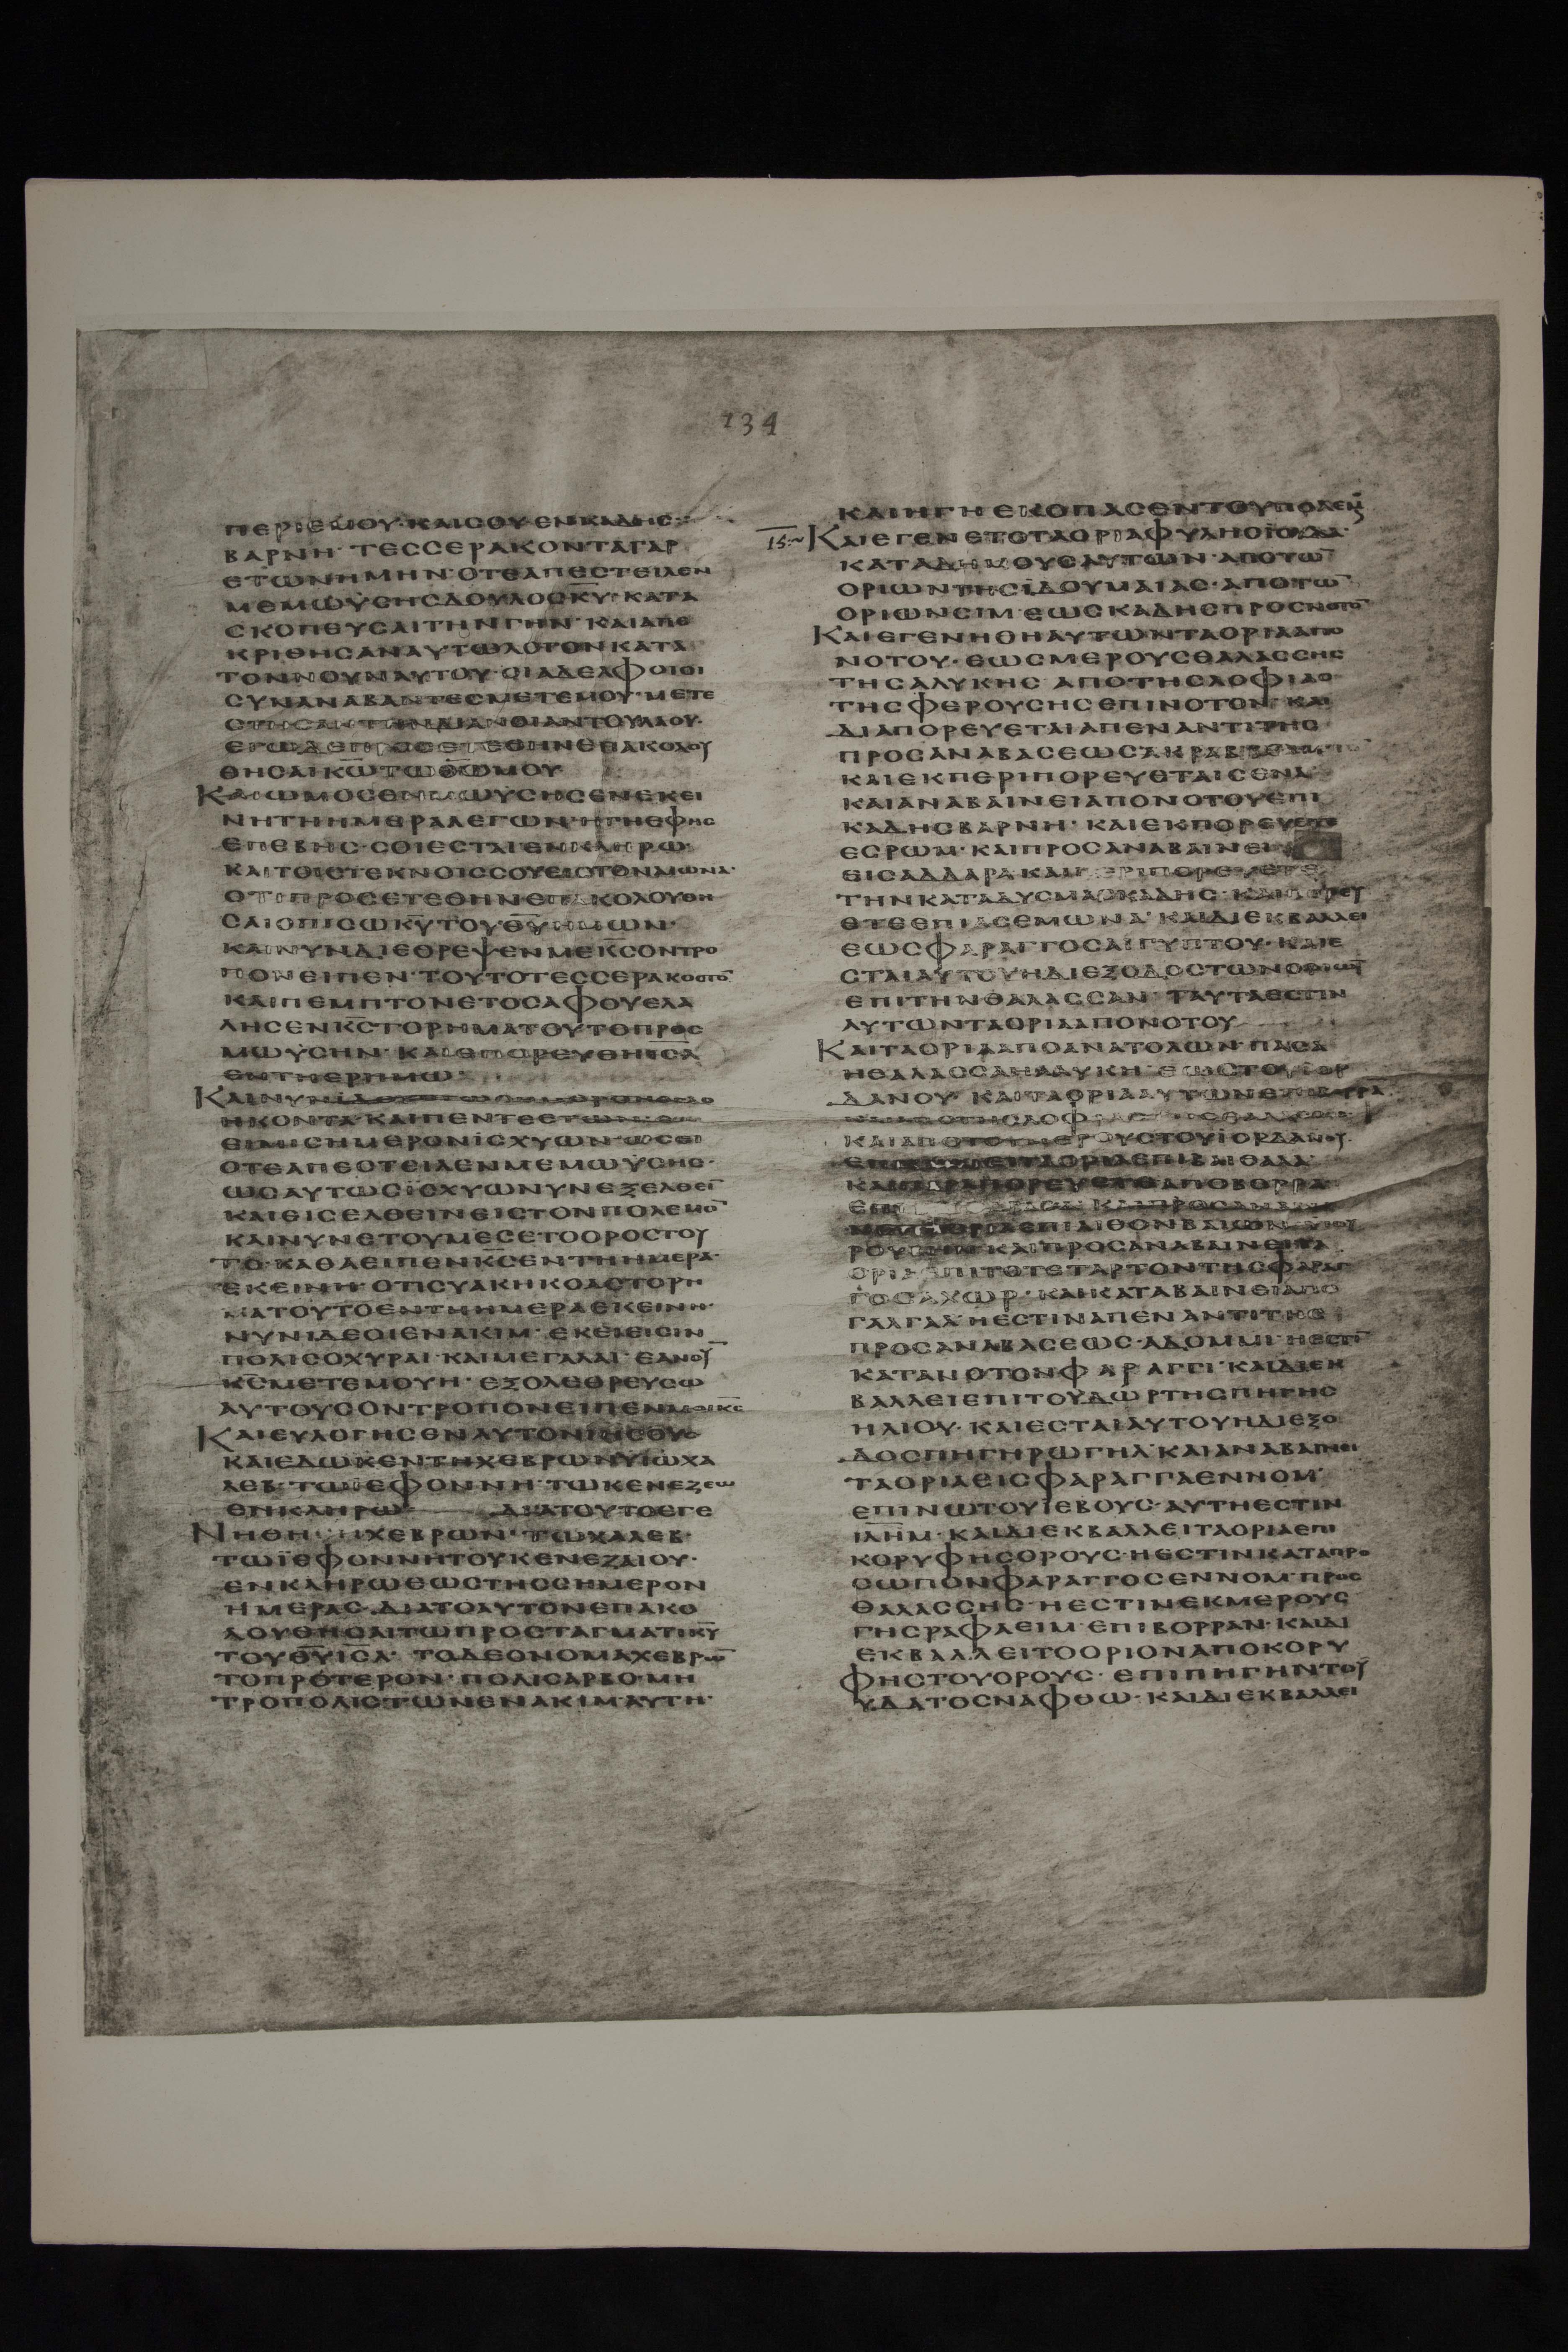 134
ΠΕΡΙΕΜΟΥ·ΚΑΙCΟΥ·ΕΝΚΑΔΗC
ΒΑΡΝΗ· ΤΕCCΕΡΑΚΟΝΤΑΓΑΡ
ΕΤΩΝΗΜΗΝ·ΟΤΕΑΠΕCΤΕΙΛΕΝ
ΜΕΜΩΥCΗCΔΟΥΛΟCΚΥ·ΚΑΤΑ
CΚΟΠΕΥCΑΙΤΗΝΓΗΝ·ΚΑΙΑΠΕ
ΚΡΙΘΗCΑΝΑΥΤΩΛΟΓΟΝΚΑΤΑ
ΤΟΝΝΟΥΝΑΥΤΟΥ·ΟΙΑΔΕΛΦΟΙΟΙ
CΥΝΑΝΑΒΑΝΤΕCΜΕΤΕΜΟΥ·ΜΕΤΕ
CΤΗCΑΝΤΗΝΔΙΑΝΟΙΑΝΤΟΥΛΑΟΥ·
ΕΓΩΔΕΠΡΟCΕΤΕΘΗΝΕΠΑΚΟΛΟΥ
ΘΗCΑΙΚΩΤΩΘΩΜΟΥ
ΚΑΙΩΜΟCΕΝΜΩΥCΗCΕΝΕΚΕΙ
ΝΗΤΗΗΜΕΡΑΛΕΓΩΝ·ΗΓΗΕΦΗC
ΕΠΕΒΗC·CΟΙΕCΤΑΙΕΝΚΛΗΡΩ·
ΚΑΙΤΟΙCΤΕΚΝΟΙCCΟΥΕΙCΤΟΝΑΙΩΝΑ·
ΟΤΙΠΡΟCΕΤΕΘΗΝΕΠΑΚΟΛΟΥΘΗ
CΑΙΟΠΙCΩΚΥΤΟΥΘΥΗΜΩΝ·
ΚΑΙΝΥΝΔΙΕΘΡΕΨΕΝΜΕΚCΟΝΤΡΟ
ΠΟΝΕΙΠΕΝ·ΤΟΥΤΟΤΕCCΕΡΑΚΟCΤΟ
ΚΑΙΠΕΜΠΤΟΝΕΤΟCΑΦΟΥΕΛΑ
ΛΗCΕΝΚCΤΟΡΗΜΑΤΟΥΤΟΠΡΟC
ΜΩΥCΗΝ·ΚΑΙΕΠΟΡΕΥΘΗΙCΛ
ΕΝΤΗΕΡΗΜΩ·
ΚΑΙΝΥΝΙΔΟΥ
ΗΚΟΝΤΑ·ΚΑΙΠΕΝΤΕΕΤΩΝ·ΕΤΙ
ΕΙΜΙCΗΜΕΡΟΝΙCΧΥΩΝ·ΩCΕΙ
ΟΤΕΑΠΕCΤΕΙΛΕΝΜΕΜΩΥCΗC·
ΩCΑΥΤΩCΪCΧΥΩΝΥΝΕΞΕΛΘΕΙ
ΚΑΙΕΙCΕΛΘΕΙΝΕΙCΤΟΝΠΟΛΕΜΟ
ΚΑΙΝΥΝΕΤΟΥΜΕCΕΤΟΟΡΟCΤΟΥ
ΤΟ·ΚΑΘΑΕΙΠΕΝΚCΕΝΤΗΗΜΕΡΑ·
ΕΚΕΙΝΗ·ΟΤΙCΥΑΚΗΚΟΑCΤΟΡΗ
ΜΑΤΟΥΤΟΕΝΤΗΗΜΕΡΑΕΚΕΙΝΗ·
ΝΥΝΙΔΕΟΙΕΝΑΚΙΜ·ΕΚΕΙΕΙCΙΝ
ΠΟΛΙCΟΧΥΡΑΙ·ΚΑΙΜΕΓΑΛΑΙ·ΕΑΝΟΥ
ΚCΜΕΤΕΜΟΥΗ·ΕΞΟΛΕΘΡΕΥCΩ
ΑΥΤΟΥCΟΝΤΡΟΠΟΝΕΙΠΕΝΜΟΙΚC
ΚΑΙΕΥΛΟΓΗCΕΝΑΥΤΟΝΙΗCΟΥC
ΚΑΙΕΔΩΚΕΝΤΗΧΕΒΡΩΝΥΙΩΧΑ
ΛΕΒ·ΤΩΙΕΦΟΝΝΗ·ΤΩΚΕΝΕΖΕΩ
ΕΝΚΛΗΡΩ ΔΙΑΤΟΥΤΟΕΓΕ
ΝΗΘΗΗΧΕΒΡΩΝ·ΤΩΧΑΛΕΒ·
ΤΩΪΕΦΟΝΝΗΤΟΥΚΕΝΕΖΑΙΟΥ·
ΕΝΚΛΗΡΩΕΩCΤΗCCΗΜΕΡΟΝ
ΗΜΕΡΑC·ΔΙΑΤΟΑΥΤΟΝΕΠΑΚΟ
ΛΟΥΘΗCΑΙΤΩΠΡΟCΤΑΓΜΑΤΙΚΥ
ΤΟΥΘΥΙCΛ· ΤΟΔΕΟΝΟΜΑΧΕΒΡΩ
ΤΟΠΡΟΤΕΡΟΝ·ΠΟΛΙCΑΡΒΟ·ΜΗ
ΤΡΟΠΟΛΙCΤΩΝΕΝΑΚΙΜ·ΑΥΤΗ·
ΚΑΙΗΓΗΕΚΟΠΑCΕΝΤΟΥΠΟΛΕΜ
15 ΚΑΙΕΓΕΝΕΤΟΤΑΟΡΙΑΦΥΛΗCΪΟΥΔΑ·
ΚΑΤΑΔΗΜΟΥCΑΥΤΩΝ·ΑΠΟΤΩ
ΟΡΙΩΝΤΗCΪΔΟΥΜΑΙΑC·ΑΠΟΤΩ
ΟΡΙΩΝCΙΜ·ΕΩCΚΑΔΗCΠΡΟCΝΟΤΟ
ΚΑΙΕΓΕΝΗΘΗΑΥΤΩΝΤΑΟΡΙΑΑΠΟ
ΝΟΤΟΥ·ΕΩCΜΕΡΟΥCΘΑΛΑCCΗC
ΤΗCΑΛΥΚΗC ΑΠΟΤΗCΛΟΦΙΑC
ΤΗCΦΕΡΟΥCΗCΕΠΙΝΟΤΟΝ·ΚΑΙ
ΔΙΑΠΟΡΕΥΕΤΑΙΑΠΕΝΑΝΤΙΤΗC
ΠΡΟCΑΝΑΒΑCΕΩCΑΚΡΑΒ
ΚΑΙΕΚΠΕΡΙΠΟΡΕΥΕΤΑΙCΕΝΑ
ΚΑΙΑΝΑΒΑΙΝΕΙΑΠΟΝΟΤΟΥΕΠΙ
ΚΑΔΗCΒΑΡΝΗ· ΚΑΙΕΚΠΟΡΕΥΕΤΑΙ
ΕCΡΩΜ·ΚΑΙΠΡΟCΑΝΑΒΑΙΝΕΙ
ΕΙCΑΔΔΑΡΑΚΑΙΠΕΡΙΠΟΡΕΥΕΤΕ
ΤΗΝΚΑΤΑΔΥCΜΑCΚΑΔΗC·ΚΑΙ
ΕΤΕΕΠΙΑCΕΜΩΝΑ·ΚΑΙΔΙΕΚΒΑΛΛΕΙ
ΕΩCΦΑΡΑΓΓΟCΑΙΓΥΠΤΟΥ·ΚΑΙΕ
CΤΑΙΑΥΤΟΥΗΔΙΕΞΟΔΟCΤΩΝΟΡΙΩ
ΕΠΙΤΗΝΘΑΛΑCCΑΝ·ΤΑΥΤΑΕCΤΙΝ
ΑΥΤΩΝΤΑΟΡΙΑΑΠΟΝΟΤΟΥ
ΚΑΙΤΑΟΡΙΑΑΠΟΑΝΑΤΟΛΩΝ·ΠΑCΑ
ΗΘΑΛΑCCΑΗΑΛΥΚΗ·ΕΩCΤΟΥΙΟΡ
ΔΑΝΟΥ·ΚΑΙΤΑΟΡΙΑΑΥΤΩΝ
ΚΑΙΑΠΟΤΟΥΜΕΡΟΥCΤΟΥΙΟΡΔΑΝΟΥ·
ΤΑΟΡΙΑΕΠΙΒΑΙΘΑΛΑ·
ΚΑΙΠΑΡΑΠΟΡΕΥΕΤΕΑΠΟΒΟΡΡΑ
ΚΑΙΠΡΟCΑΝΑΒΑΙ
ΕΠΙΛΙΘΟΝΒΑΙΩΝ
ΡΟΥΒΗΝ·ΚΑΙΠΡΟCΑΝΑΒΑΙΝΕΙΤΑ
ΟΡΙΑΕΠΙΤΟΤΕΤΑΡΤΟΝΤΗCΦΑΡΑΓ
ΓΟCΑΧΩΡ·ΚΑΙΚΑΤΑΒΑΙΝΕΙΑΠΟ
ΓΑΛΓΑΛ·ΗΕCΤΙΝΑΠΕΝΑΝΤΙΤΗC
ΠΡΟCΑΝΑΒΑCΕΩC·ΑΔΟΜΜΙ·ΗΕCΤΙ
ΚΑΤΑΝΟΤΟΝΦΑΡΑΓΓΙ·ΚΑΙΔΙΕΚ
ΒΑΛΛΕΙΕΠΙΤΟΥΔΩΡΤΗCΠΗΓΗC
ΗΛΙΟΥ·ΚΑΙΕCΤΑΙΑΥΤΟΥΗΔΙΕΞΟ
ΔΟCΠΗΓΗΡΩΓΗΛ·ΚΑΙΑΝΑΒΑΙΝΕΙ
ΤΑΟΡΙΑΕΙCΦΑΡΑΓΓΑΕΝΝΟΜ·
ΕΠΙΝΩΤΟΥΪΕΒΟΥC·ΑΥΤΗΕCΤΙΝ
ΙΛΗΜ·ΚΑΙΔΙΕΚΒΑΛΛΕΙΤΑΟΡΙΑΕΠΙ
ΚΟΡΥΦΗCΟΡΟΥC·ΗΕCΤΙΝΚΑΤΑΠΡΟ
CΩΠΟΝΦΑΡΑΓΓΟCΕΝΝΟΜ·ΠΡΟC
ΘΑΛΑCCΗC·ΗΕCΤΙΝΕΚΜΕΡΟΥC
ΓΗCΡΑΦΑΕΙΜ·ΕΠΙΒΟΡΡΑΝ·ΚΑΙΔΙ
ΕΚΒΑΛΛΕΙΤΟΟΡΙΟΝΑΠΟΚΟΡΥ
ΦΗCΤΟΥΟΡΟΥC·ΕΠΙΠΗΓΗΝΤΟΥ
ΥΔΑΤΟCΝΑΦΘΩ·ΚΑΙΔΙΕΚΒΑΛΛΕΙ